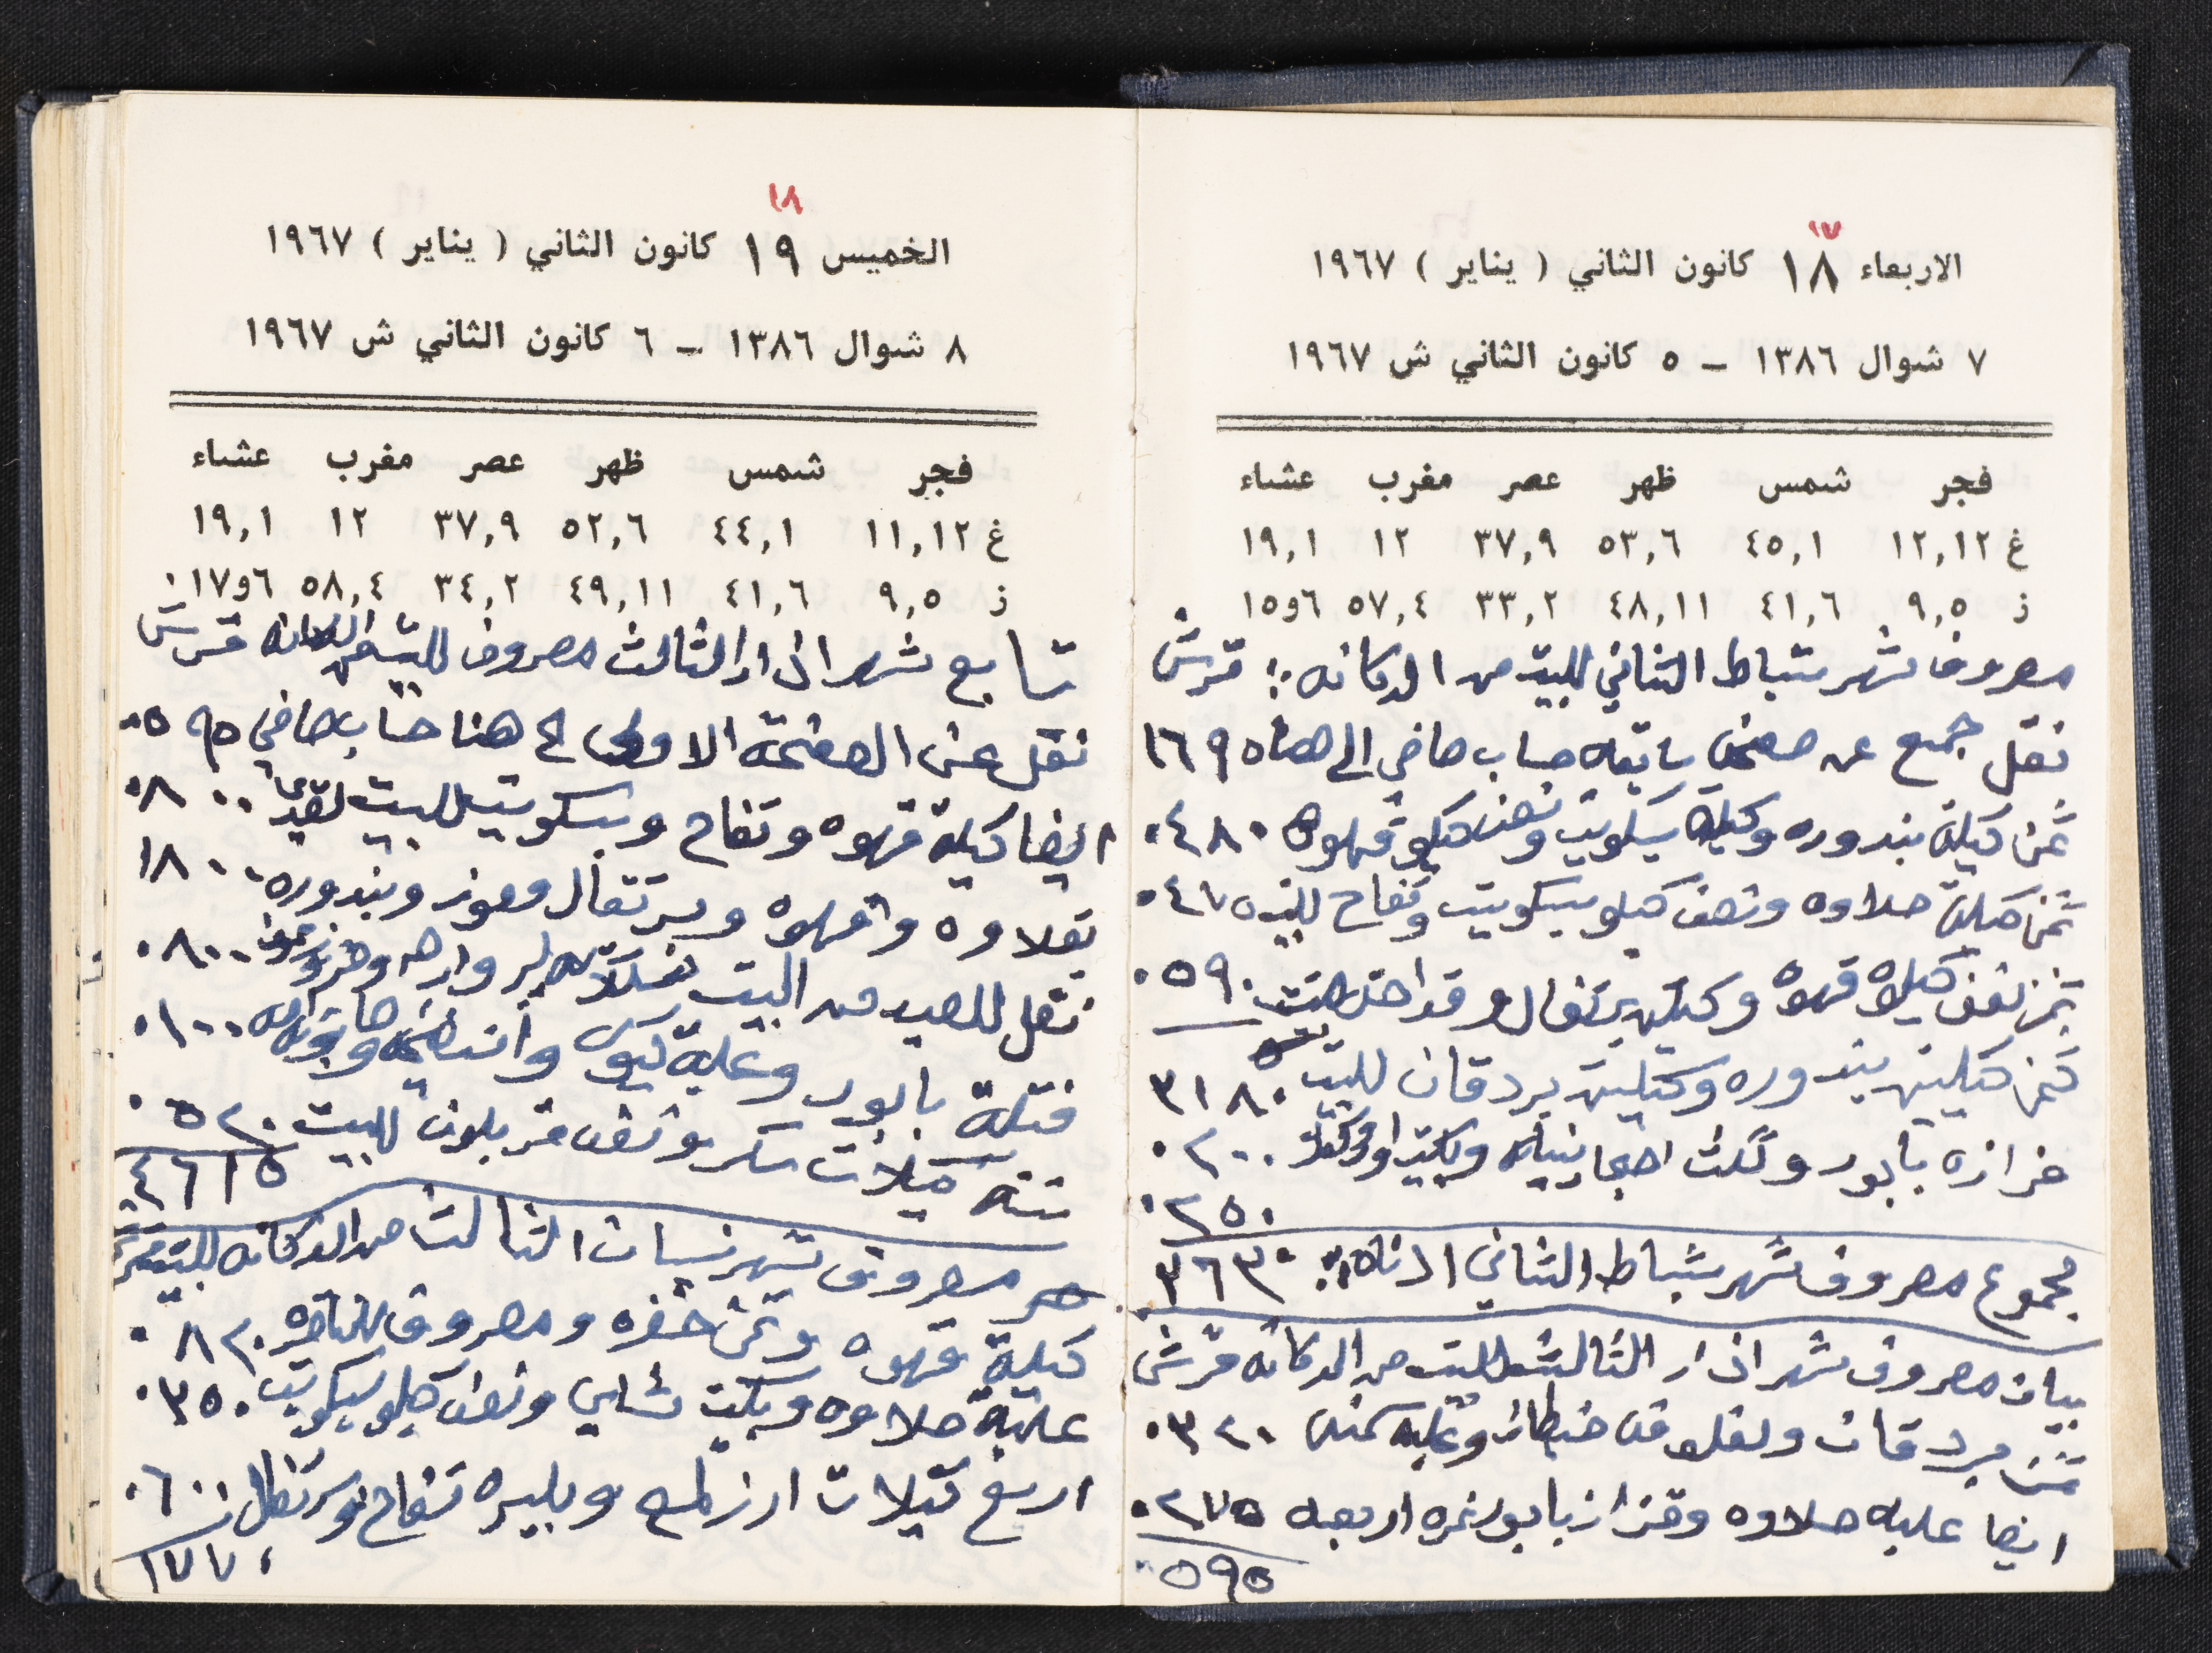 ١٧
الاربعاء ١٨ كانون الثاني ( يناير ) ١٩٦٧
٧ شوال ١٣٨٦ – ٥ كانون الثاني ش ١٩٦٧
فجر شمس ظهر عصر مغرب عشاء
غ ١٢,١٢ ٤٥,١ ٥٣,٦ ٣٧,٩ ١٢ ١٩,١
ز ٩,٥ ٤١,٦ ٤٨,١١ ٣٣,٢ ٥٧,٤ ٦و١٥
مصروف شهر شباط الثاني للبيت من الدكانه :: قرش
نقل جمع عن صفحه سابقه حساب صافي الى هنا ١٦٩٥
ثمن كيلة بندوره وكيلة بسكويت ونصف كيلو قهوه ٠٤٨٠
ثمن كيلة حلاوه ونصف كيلو بسكويت وتفاح للبيت ٠٤٧٥
ثمن نصف كيلو قهوه وكيلين برتقال و ٠٥٩٠
ثمن كيلين بندوره وكيلين بردقان للبيت ٣١٨٠
خرازه بابور وثلث وبكيت ٠٢٠٠
٠٢٥٠
مجموع مصروف شهر شباط الثاني ادناه :: ٣٦٣٠
بيان مصروف شهر اذار الثالث للبيت من الدكانه قرش
ثمن بردقان وعلبه سمنه ٠٣٢٠
ايضا علبه حلاوه وقزاز بابور نمره اربعه ٠٢٧٥
٠٥٩٥
١٨
الخميس ١٩ كانون الثاني ( يناير ) ١٩٦٧
٨ شوال ١٣٨٦ – ٦ كانون الثاني ش ١٩٦٧
فجر شمس ظهر عصر مغرب عشاء
غ ١١,١٢ ٤٤,١ ٥٢,٦ ٣٧,٩ ١٢ ١٩,١
ز ٩,٥ ٤١,٦ ٤٩,١١ ٣٤,٢ ٥٨,٤ ٦و١٧
تابع شهر اذار الثالث مصروف للبيت من الدكانه قرش
نقل عن الصفحة الاولى الى هنا حساب صافي ٠٥٩٥
ايضا كيلة قهوه وتفاح وبسكويت للبيت ٠٨٠٠
بقلاوه وقهوه وبرتقال وموز وبندوره ١٨٠٠
نقل للعيد من البيت ٠٨٠٠
فتلة بابور وعلبة ٠١٠٠
ستة كيلات سكر ونصف للبيت ٠٥٢٠
٤٦١٥
مصروف شهر نيسان الثالث من الدكانه للبيت قرش
كيلة قهوه وثمن خضره ومصروف ٠٨٢٠
علبة حلاوه وبكيت شاي ونصف كيلو بسكويت ٠٣٥٠
اربع كيلات ارز وبليره تفاح وبرتقال ٠٦٠٠
١٧٧٠